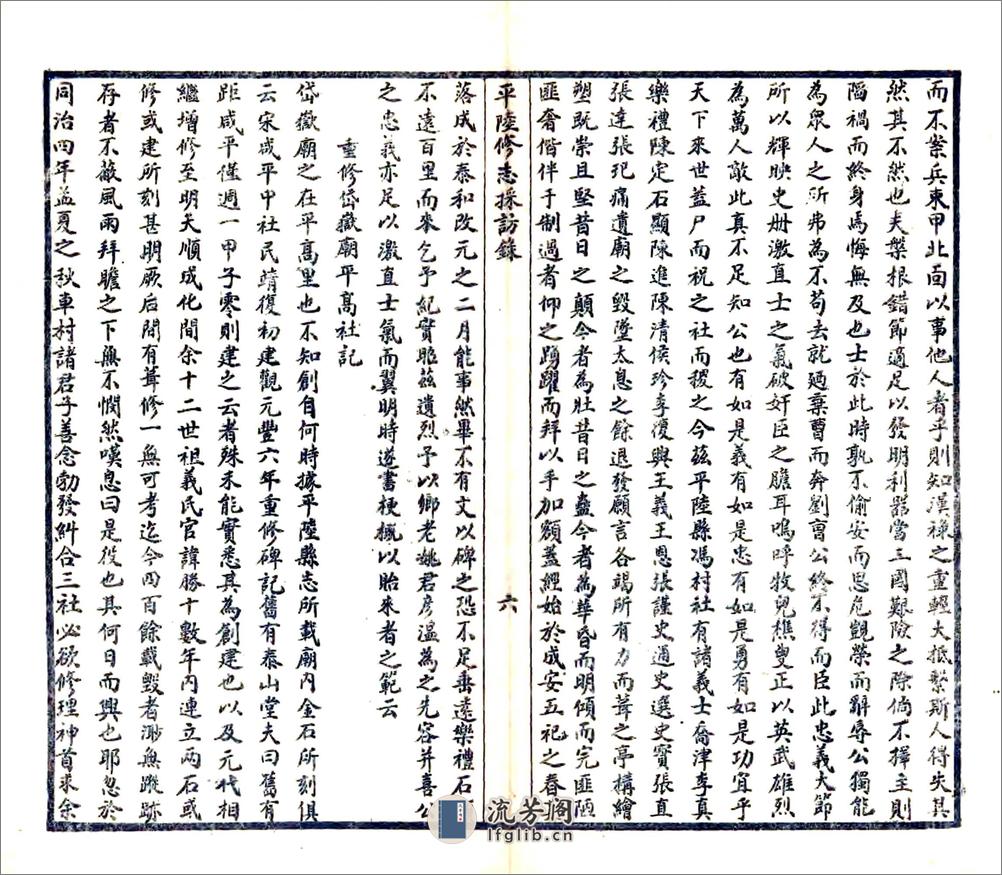 而不案兵束甲北面以事他人者乎則知漢祿之重輕大抵繫斯人得失其
然其不然也夫槃根錯節適足以發明利器當三國艱險之際倘不擇主則
陷禍而終身焉悔無及也士於此時孰不偷安而思危覬榮而辭辱公獨能
為衆人之所弗為不苟去就廼棄曹而奔劉曹公終不得而臣此忠義大節
所以輝映史册激直士之氣破奸臣之膽耳嗚呼牧兒樵叟正以英武雄烈
為萬人敵此真不足知公也有如是義有如是忠有如是勇有如是功宜乎
天下來世益尸而祝之社而稷之今茲平陸縣馮村社有諸義士喬津李真
樂禮陳定石顯陳進陳清侯珍李復興王義王恩張謹史通史選史實張直
張達張玘痛遺廟之毀墮太息之餘退發願言各竭所有力而葺之亭構繪
塑既崇且堅昔日之顛今者為壯昔日之蠱今者為華昏而明傾而完匪陋
匪奢偕伴于制過者仰之踴躍而拜以手加額蓋經始於成安五祀之春
平陸修志採訪錄
六
落成於泰和改元之二月能事然畢不有文以碑之恐不足垂遠樂禮石
不遠百里而來乞予紀實昭茲遺烈予以鄉老姚君彦溫為之先容并喜公
之忠義亦足以激直士氣而翼明時遂書梗概以貽來者之範云
重修岱嶽廟平高社記
岱嶽廟之在平高里也不知創自何時據平陸縣志所載廟內金石所刻俱
云宋咸平中社民請復初建觀元豐六年重修碑記舊有泰山堂夫曰舊有
距咸平僅週一甲子零則建之云者殊未能實悉其為創建也以及元代相
繼增修至明天順成化間余十二世祖義民官諱勝十數年內連立兩石或
修或建所刻甚明厥后間有葺修一無可考迄今四百餘載毀者渺無蹤跡
存者不蔽風雨拜瞻之下無不憫然嘆息曰是役也其何日而興也耶忽於
同治四年孟夏之秋車村諸君子善念勃發糾合三社必欲修理神首求余
流芳阁
lfglib.cn